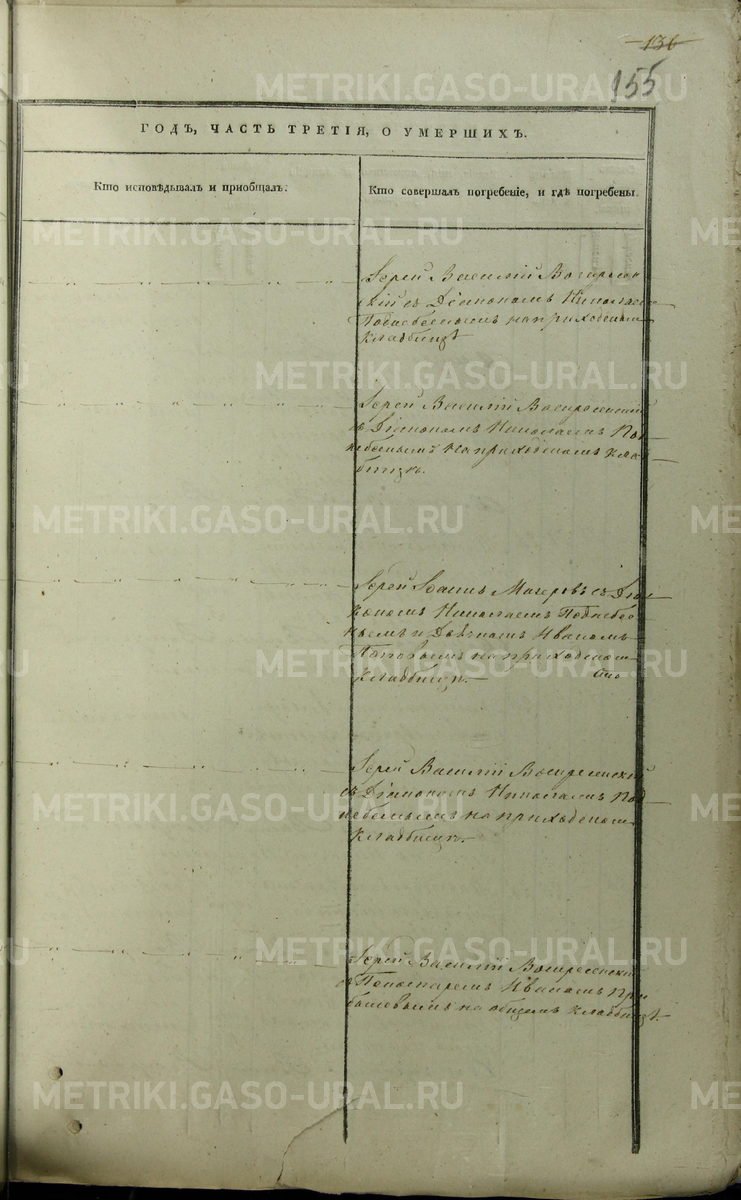 136
155
ГОДЪ, ЧАСТЬ ТРЕТІЯ, О УМЕРШИХЪ.
Кто исповѣдывалъ и приобщалъ.
Кто совершалъ погребеніе, и гдѣ погребены.
Іерей Василій Воскресен
скій съ Діакономъ Николаемъ
Поднебеснымъ на приходскомъ
кладбищѣ
Іерей Василій Воскресенскій
съ Діакономъ Николаемъ Под
небеснымъ на приходскомъ клад
бищѣ.
Іерей Іоаннъ съ Діа
кономъ Николаемъ Поднебес
нымъ и Иваномъ
Поповымъ на приходскомъ
кладбищѣ.
Іерей Василій Воскресенскій
съ Діакономъ Николаемъ Под
небеснымъ на приходскомъ
кладбищѣ.
Іерей Василій Воскресенскій
съ Пономаремъ Иваномъ
на общемъ кладбищѣ.
METRIKI.GASO-URAL.RU